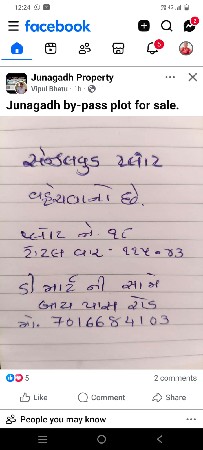 12:24
42
facebook
5
2
Junagadh Property
Vipul Bhatu · 1h ·
Junagadh by-pass plot for sale.
સેન્ડલવુડ પ્લોટ
વહેચવાનો છે.
પ્લોટ નં. ૧૮
ટોટલ વાર - ૧૧૫=૪૩
ડી માર્ટ ની સામે
બાય પાસ રોડ
મો. 7016684103
5
2 comments
Like
Comment
Share
People you may know